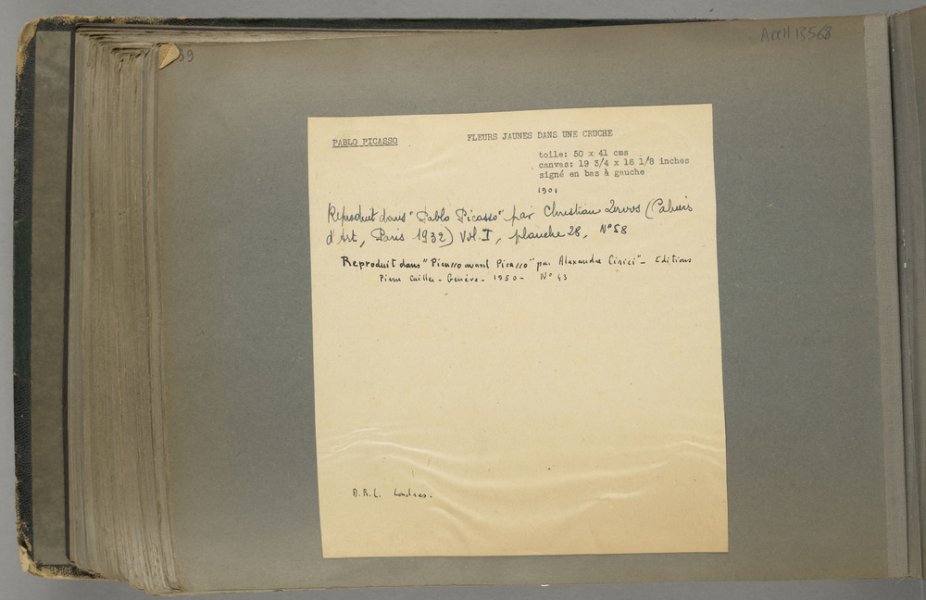 39
PABLO PICASSO
FLEURS JAUNES DANS UNE CRUCHE
toile: 50 x 41 cms
canvas: 19 3/4 x 16 1/8 inches
signé en bas à gauche
1901
Reproduit dans "Pablo Picasso" par Christian Zervos (Cahiers
d'Art, Paris 1932) Vol. I, planche 28, N° 58
Reproduit dans "Picasso avant Picasso" par Alexandre Cirici" - Editions
Pierre Cailler - Genève - 1950 - N° 43
Londres.